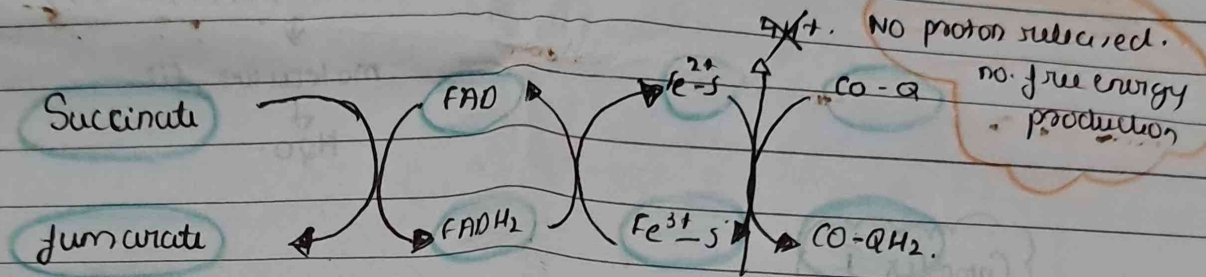 4H+. No proton released.
no. free energy
production
Succinate FAD Fe2+-S CO-Q
fumarate FADH2 Fe3+-S CO-QH2.